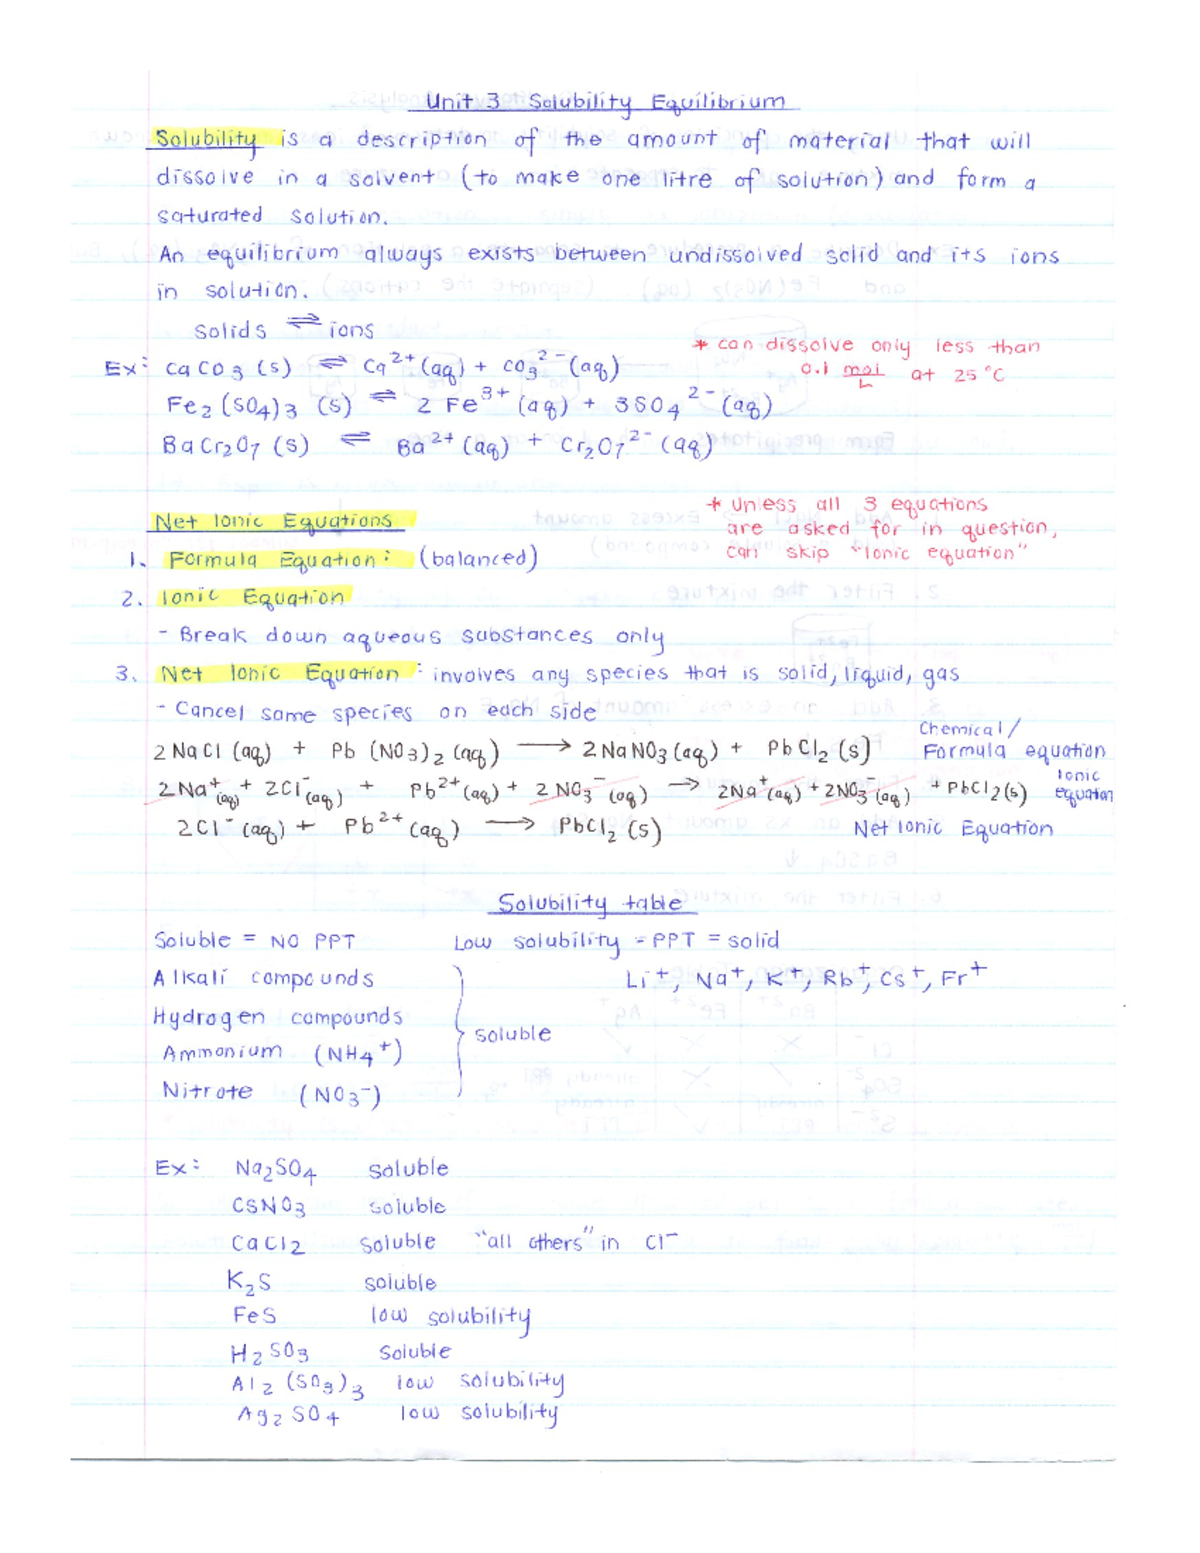 Unit 3 Solubility Equilibrium
Solubility is a description of the amount of material that will
dissolve in a solvent (to make one litre of solution) and form a
saturated solution.
An equilibrium always exists between undissolved solid and its ions
in solution.
Solids ⇌ ions
* can dissolve only less than
0.1 mol/L at 25 °C
Ex: CaCO₃ (s) ⇌ Ca²⁺(aq) + CO₃²⁻(aq)
Fe₂(SO₄)₃ (s) ⇌ 2 Fe³⁺(aq) + 3SO₄²⁻(aq)
BaCr₂O₇ (s) ⇌ Ba²⁺(aq) + Cr₂O₇²⁻(aq)
* Unless all 3 equations
are asked for in question,
can skip "Ionic equation"
Net Ionic Equations
1. Formula Equation: (balanced)
2. Ionic Equation
- Break down aqueous substances only
3. Net Ionic Equation: involves any species that is solid, liquid, gas
- Cancel same species on each side
2 NaCl (aq) + Pb(NO₃)₂ (aq) → 2NaNO₃(aq) + PbCl₂(s) Chemical/
Formula equation
2Na⁺(aq) + 2Cl⁻(aq) + Pb²⁺(aq) + 2NO₃⁻(aq) → 2Na⁺(aq) + 2NO₃⁻(aq) + PbCl₂(s) Ionic
equation
2Cl⁻(aq) + Pb²⁺(aq) → PbCl₂(s) Net Ionic Equation
Solubility table
Soluble = NO PPT Low solubility - PPT = solid
Alkali compounds Li⁺, Na⁺, K⁺, Rb⁺, Cs⁺, Fr⁺
Hydrogen compounds
soluble
Ammonium (NH₄⁺)
Nitrote (NO₃⁻)
Ex: Na₂SO₄ soluble
CsNO₃ soluble
CaCl₂ soluble "all others" in Cl⁻
K₂S soluble
FeS low solubility
H₂SO₃ soluble
Al₂(SO₃)₃ low solubility
Ag₂SO₄ low solubility